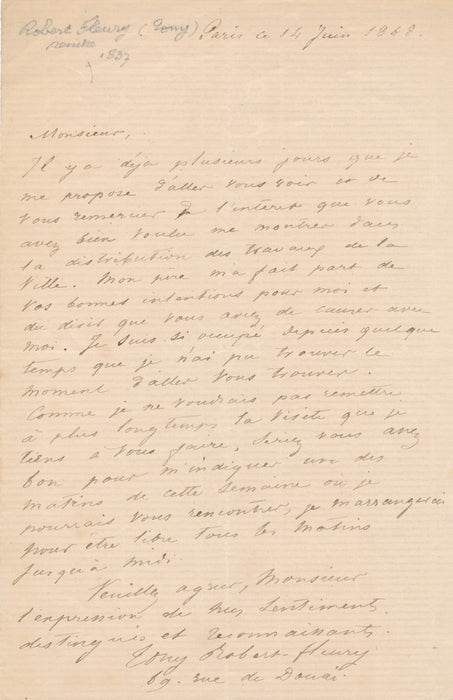 Robert Fleury (Tony)
peintre
1837
Paris ce 14 Juin 1868.
Monsieur,
Il y a déjà plusieurs jours que je
me propose d'aller vous voir et de
vous remercier de l'intérêt que vous
avez bien voulu me montrer dans
la distribution des travaux de la
Ville. Mon père m'a fait part de
vos bonnes intentions pour moi et
du désir que vous aviez de causer avec
moi. Je suis si occupé depuis quelque
temps que je n'ai pu trouver le
moment d'aller vous trouver.
Comme je ne voudrais pas remettre
à plus longtemps la visite que je
tiens à vous faire, seriez vous assez
bon pour m'indiquer un des
matins de cette semaine où je
pourrais vous rencontrer, je m'arrangerais
pour être libre tous les matins
jusqu'à midi.
Veuillez agréer, Monsieur
l'expression de mes sentiments
distingués et reconnaissants.
Tony Robert-Fleury
69. rue de Douai.